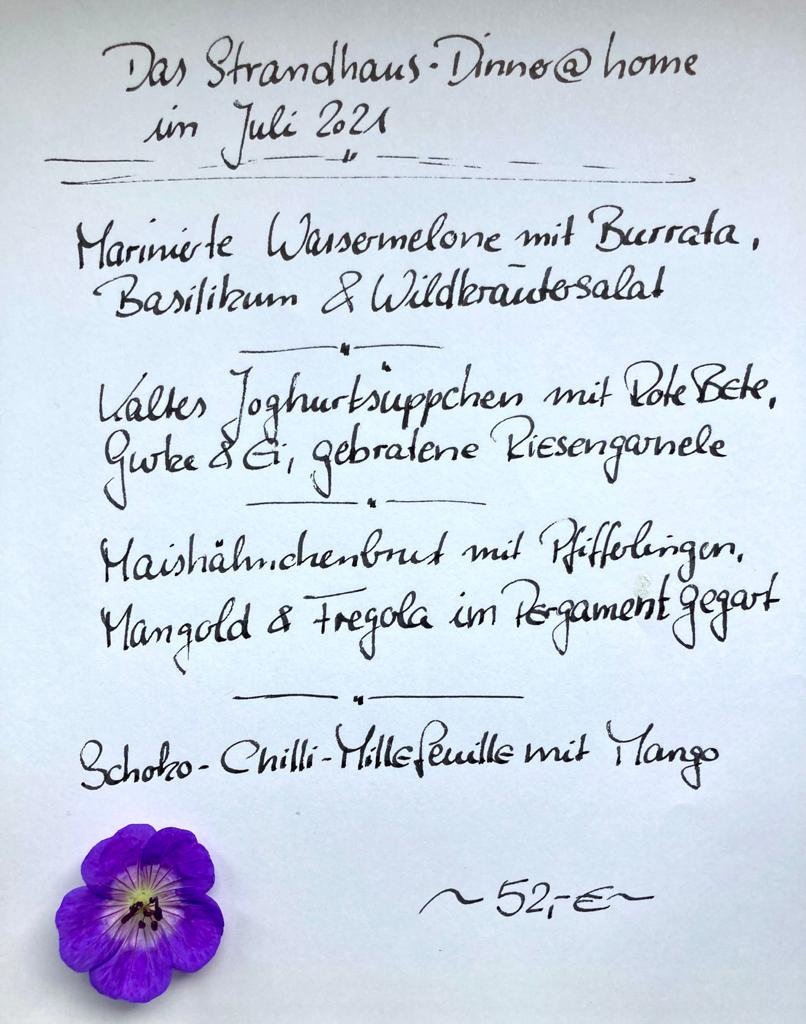 Das Strandhaus-Dinner@home
im Juli 2021
Marinierte Wassermelone mit Burrata,
Basilikum & Wildkräutersalat
Kaltes Joghurtsüppchen mit Rote Bete,
Gurke & Ei, gebratene Riesengarnele
Maishähnchenbrust mit Pfifferlingen,
Mangold & Fregola im Pergament gegart
Schoko-Chilli-Millefeuille mit Mango
~ 52,-€ ~